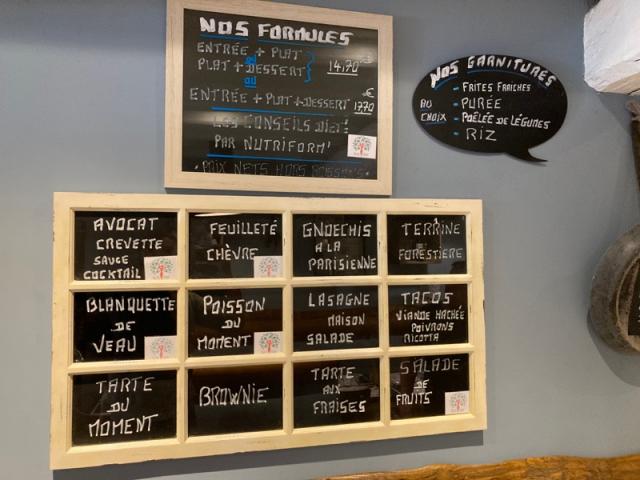 NOS FORMULES
ENTRÉE + PLAT
ou
PLAT + DESSERT
14,70 €
ou
ENTRÉE + PLAT + DESSERT 17,70 €
LES CONSEILS DIET!
PAR NUTRIFORM'
PRIX NETS HORS BOISSONS
NOS GARNITURES
AU CHOIX
- FRITES FRAICHES
- PURÉE
- POÊLÉE DE LÉGUMES
- RIZ
AVOCAT
CREVETTE
SAUCE
COCKTAIL
FEUILLETÉ
CHÈVRE
GNOCCHIS
A LA
PARISIENNE
TERRINE
FORESTIERE
BLANQUETTE
DE
VEAU
POISSON
DU
MOMENT
LASAGNE
MAISON
SALADE
TACOS
VIANDE HACHÉE
POIVRONS
RICOTTA
TARTE
DU
MOMENT
BROWNIE
TARTE
AUX
FRAISES
SALADE
DE
FRUITS